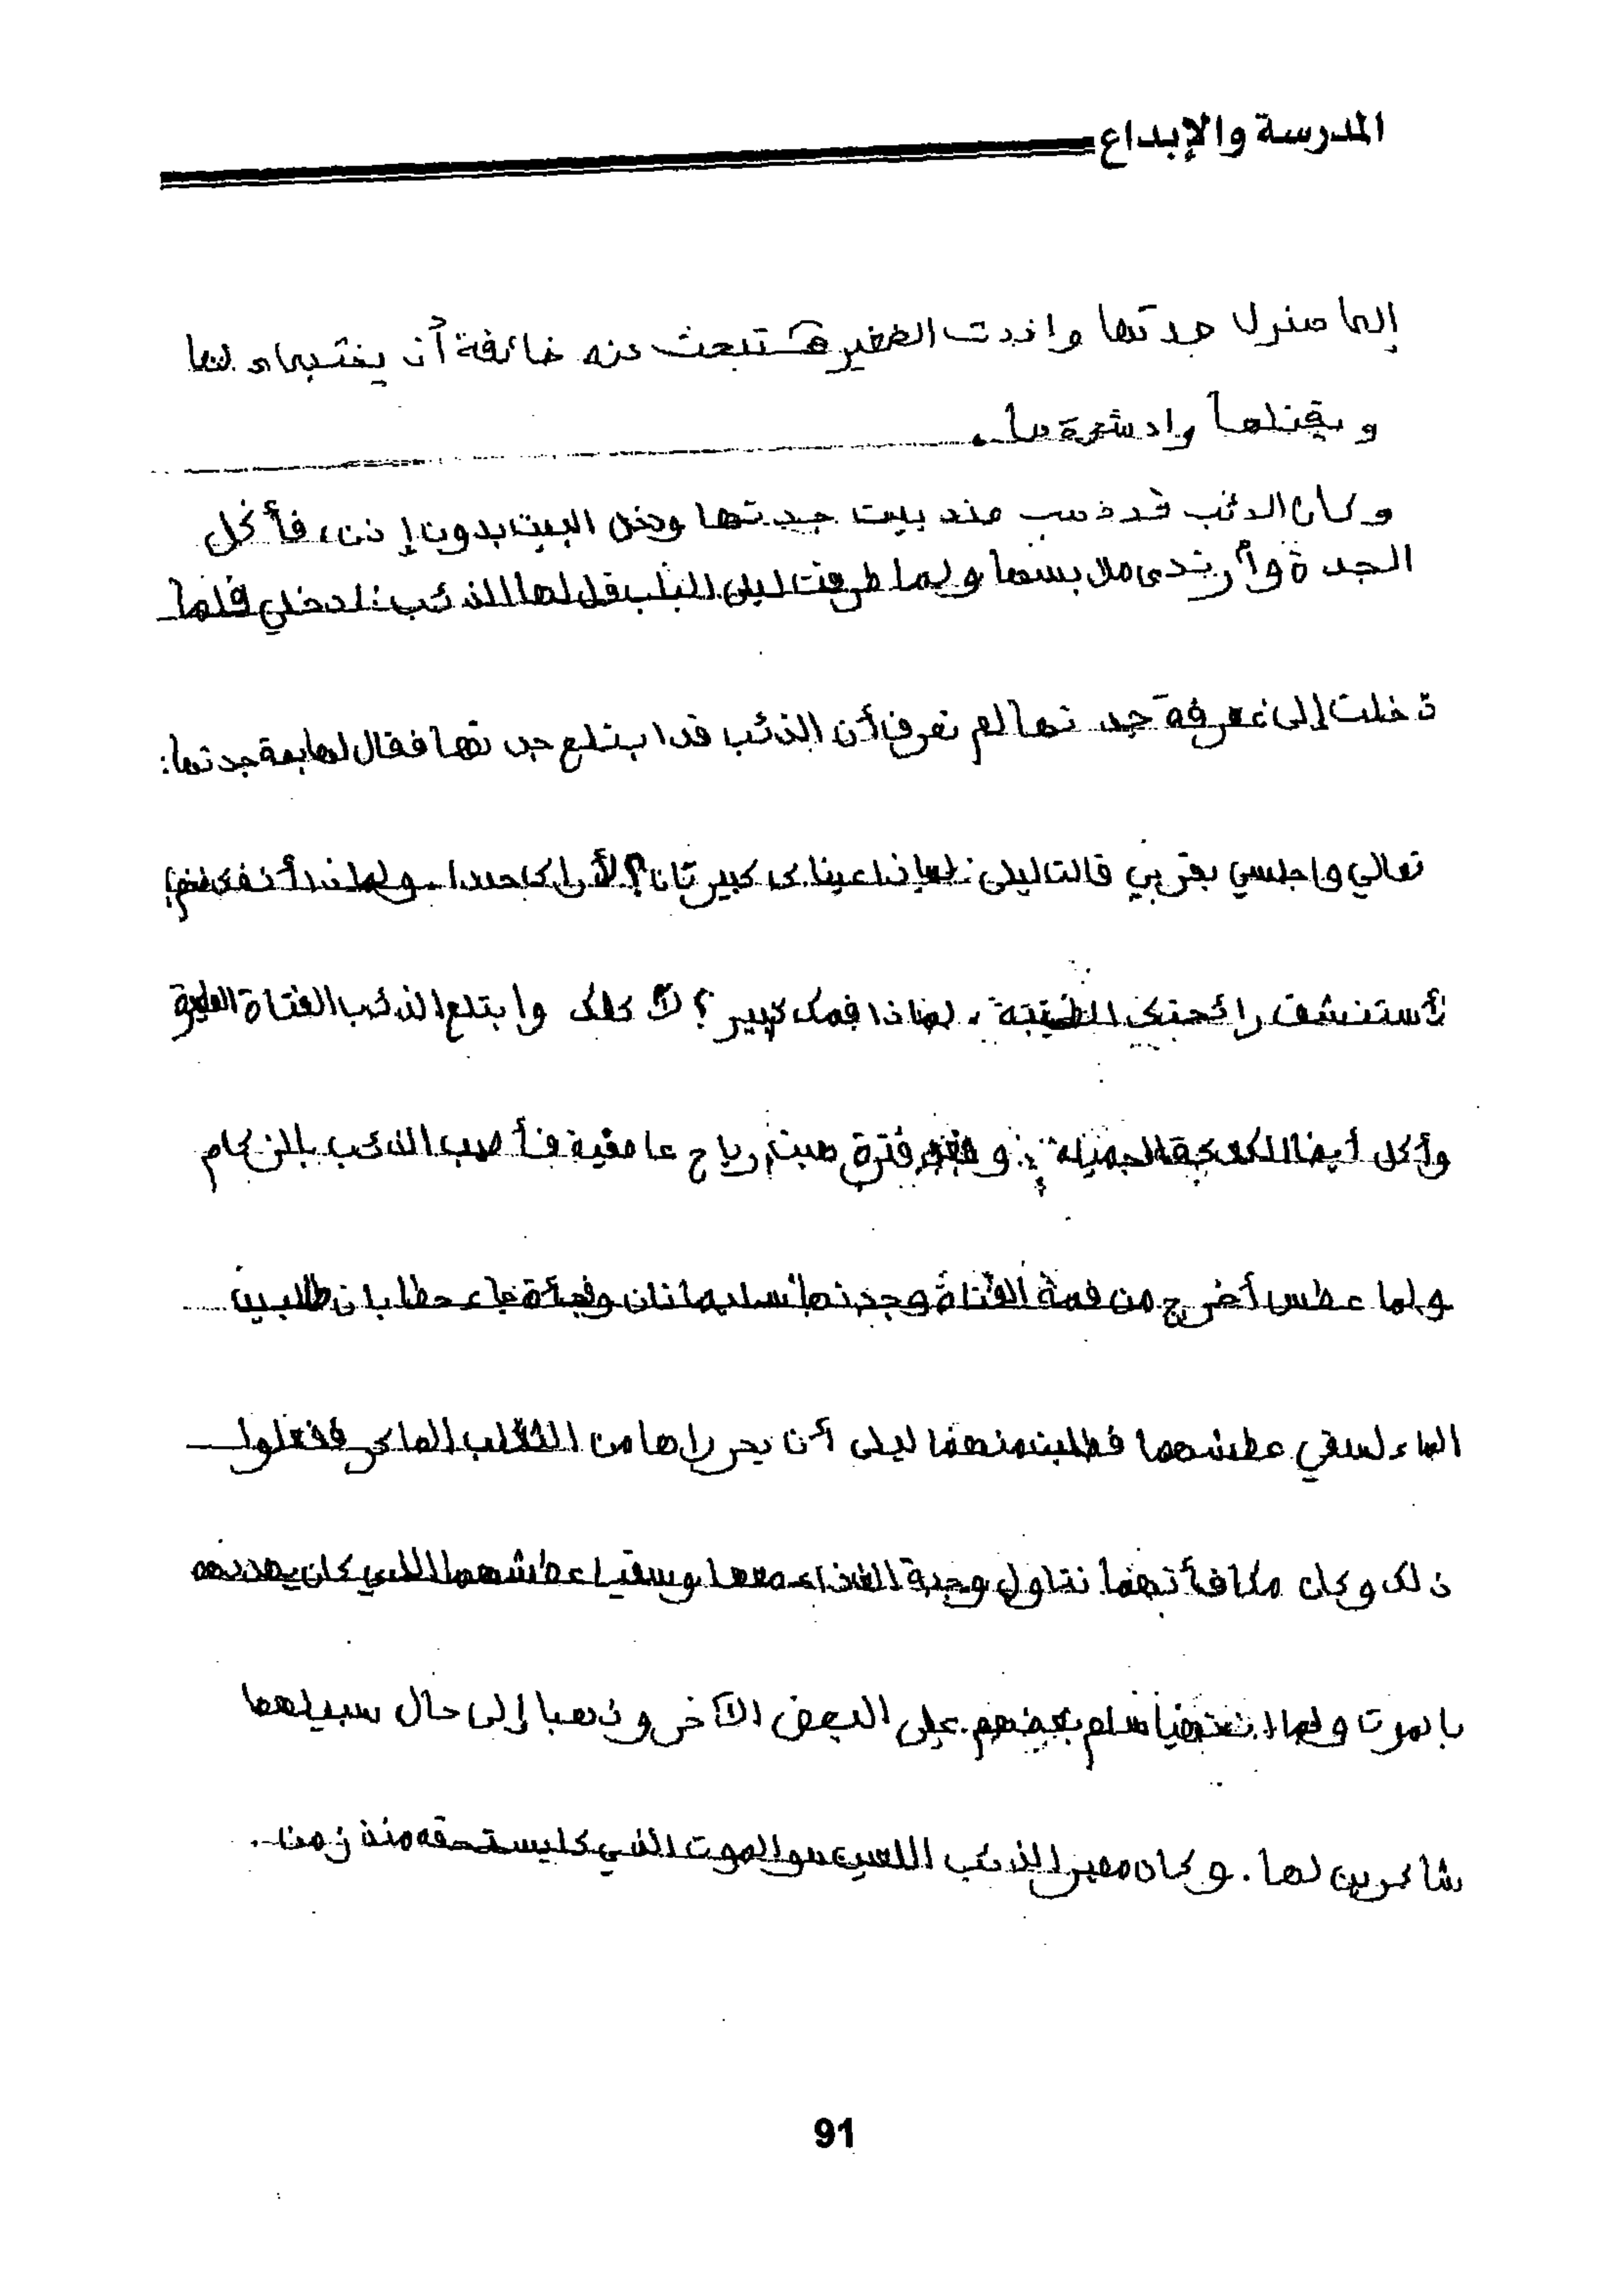 المدرسة والإبداع
إلى منزل جدتها واخدت الصغيرة تبحث عنه خائفة أن يختبىء لها
ويقتلها
وكان الدئب قد ذهب عند بيت جدتها ودخل البيت بدون إذن، فأكل
الجدة وأرتدى ملابسها ولما طرقت ليلى الباب قل لها الذئب: ادخلي فلما
دخلت إلى غرفة جدتها لم تعرف أن الذئب قد ابتلع جدتها فقال لها بمة جدتها:
تعالي واجلسي بقربي قالت ليلى: لماذا عيناك كبيرتان؟ لأراك جيدا. ولماذا أنفك ضخم؟
لأستنشق رائحتك الطيبة. لماذا فمك كبير؟ لآكلك وابتلع الذئب الفتاة
وأكل أيضا الكعكة الجميلة. وبعد فترة هبت رياح عاصفية فأصيب الذئب بالزكام
ولما عطس أخرج من فمه الفتاة وجدتها سليماتان وفجأة جاء حطابان طالبين
الماء لسقي عطشهما فطلبت منهما ليلى أن يحرراها من الثعلب الماكر ففعلوا
ذلك وكان مكافأتهما نتاول وجبة الغذاء معها وسقيا عطشهما اللذي كان يهددهم
بالموت ولما انتهيا سلم بعضهم على البعض الآخر وذهبا إلى حال سبيلهما
شاكرين لها. وكان مصير الذئب اللعين هو الموت الذي كا يستحقه منذ زمن.
91